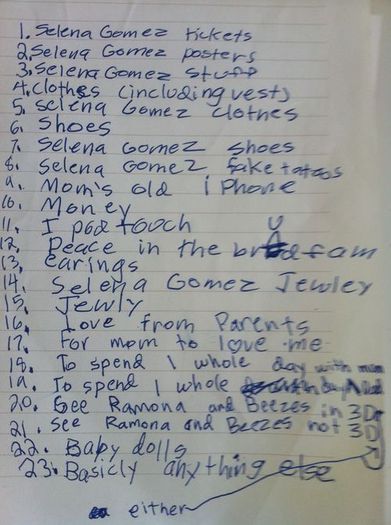 1. Selena Gomez tickets
2. Selena Gomez posters
3. Selena Gomez stuff
4. clothes (including vests)
5. Selena Gomez clothes
6. Shoes
7. Selena Gomez shoes
8. Selena Gomez fake tatoos
9. Mom's old iPhone
10. Money
11. I pod touch
12. Peace in the fam
13. earings
14. Selena Gomez Jewley
15. Jewly
16. Love from Parents
17. For mom to love me
18. To spend 1 whole day with mom
19. To spend 1 whole day
20. See Ramona and Beezes in 3D
21. See Ramona and Beezes not 3D
22. Baby dolls
23. Basicly anything else
either